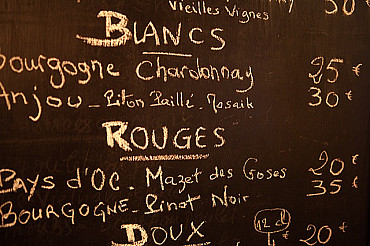 Vieilles Vignes 30
BLANCS
Bourgogne Chardonnay 25 €
Anjou - Piton Paillé - Mosaik 30 €
ROUGES
Pays d'Oc - Mazet des Goses 20 €
BOURGOGNE - Pinot Noir 35 €
DOUX 12 cl
4 € 20 €